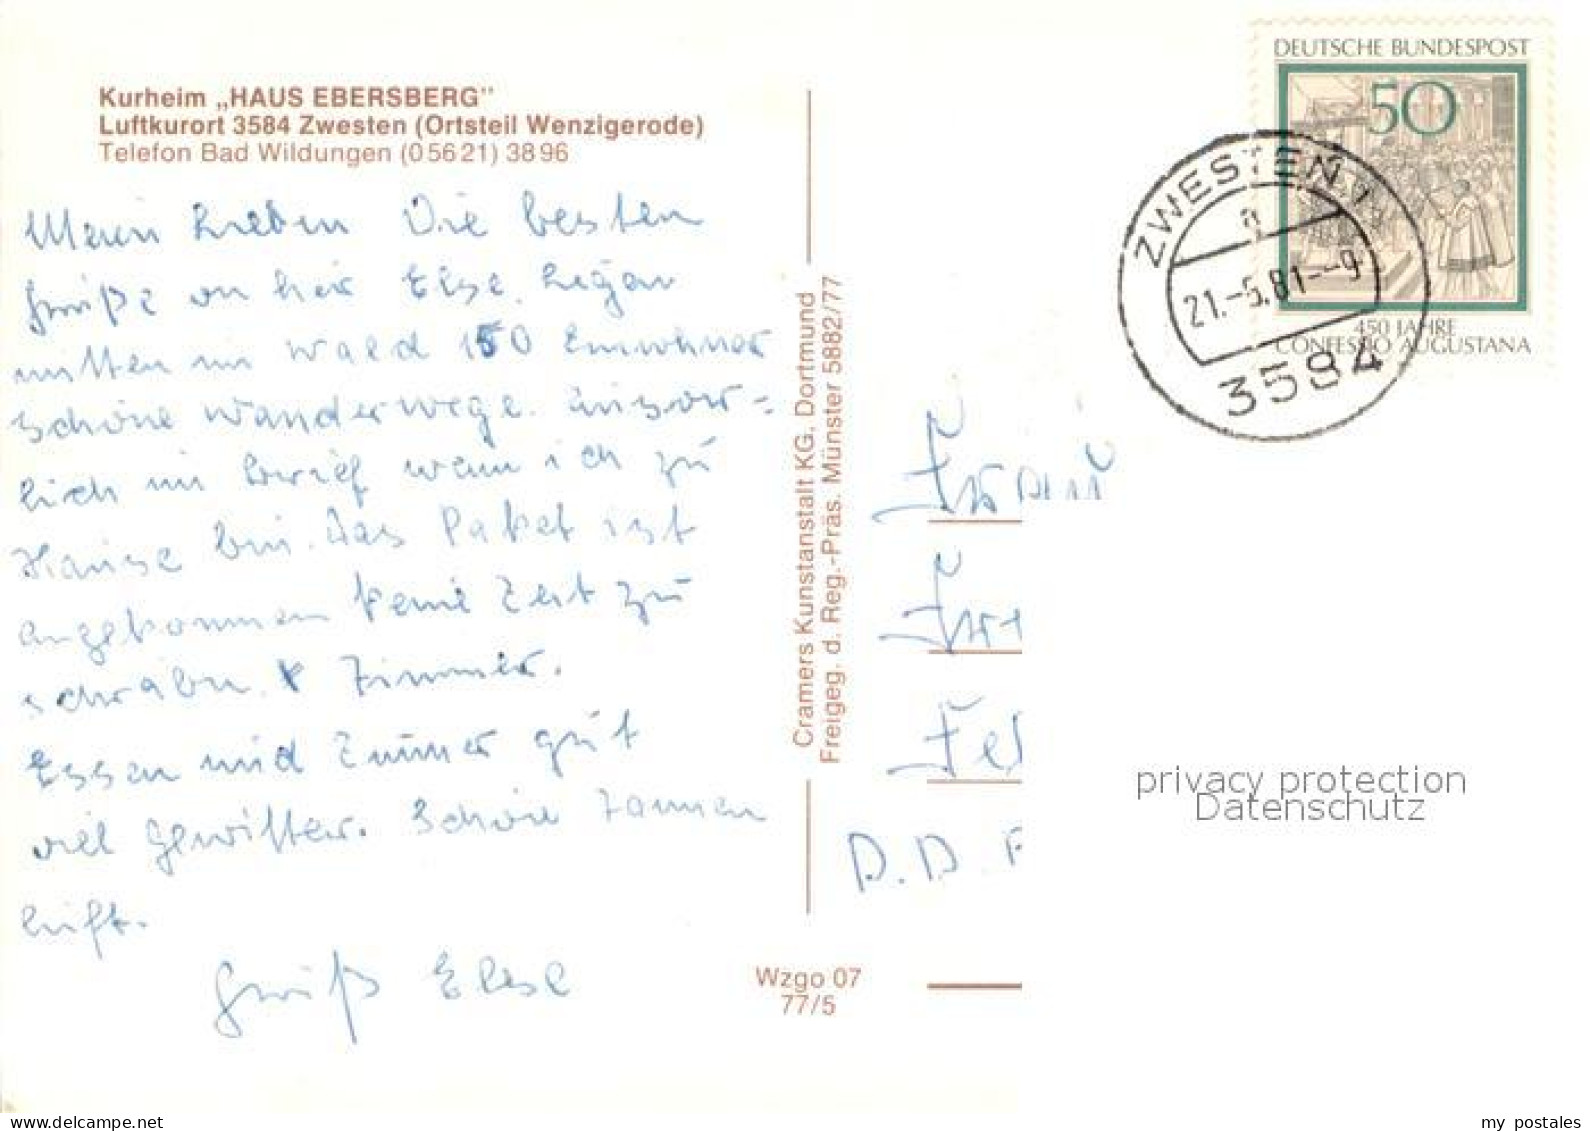 Kurheim „HAUS EBERSBERG"
Luftkurort 3584 Zwesten (Ortsteil Wenzigerode)
Telefon Bad Wildungen (05621) 3896
Meine Lieben Die besten
Grüße von hier Else. Liegen
mitten im Wald 150 Einwohner
schöne Wanderwege.
lich im Brief wenn ich zu
Hause bin. Das Paket ist
angekommen keine Zeit zu
schreiben. Zimmer.
Essen und Zimmer gut
viel Gewitter. Schöne Tannen
luft.
Gruß Else
Cramers Kunstanstalt KG, Dortmund
Freigeg. d. Reg.-Präs. Münster 5882/77
Wzgo 07
77/5
DEUTSCHE BUNDESPOST
50
450 JAHRE
CONFESSIO AUGUSTANA
ZWESTEN 1
a
21.-5.81.--9
3584
D.D.
privacy protection
Datenschutz
my postales